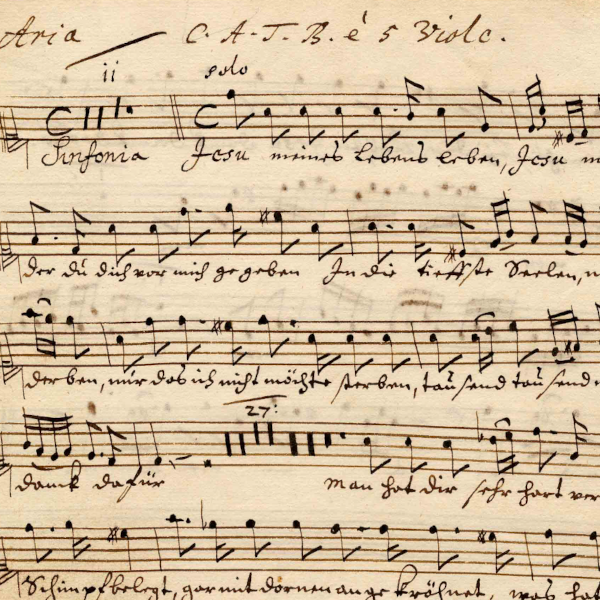 Aria C. A. T. B. è 5 Viole.
ii solo
Sinfonia Jesu meines Lebens leben, Jesu
der du dich vor mich gegeben In die tieffste Seelen,
derben, nur das ich nicht möchte sterben, tausend tausend
27:
danck dafür man hat dir sehr hart ver
Schimpf belegt, gar mit dornen angekröhnet, was hat